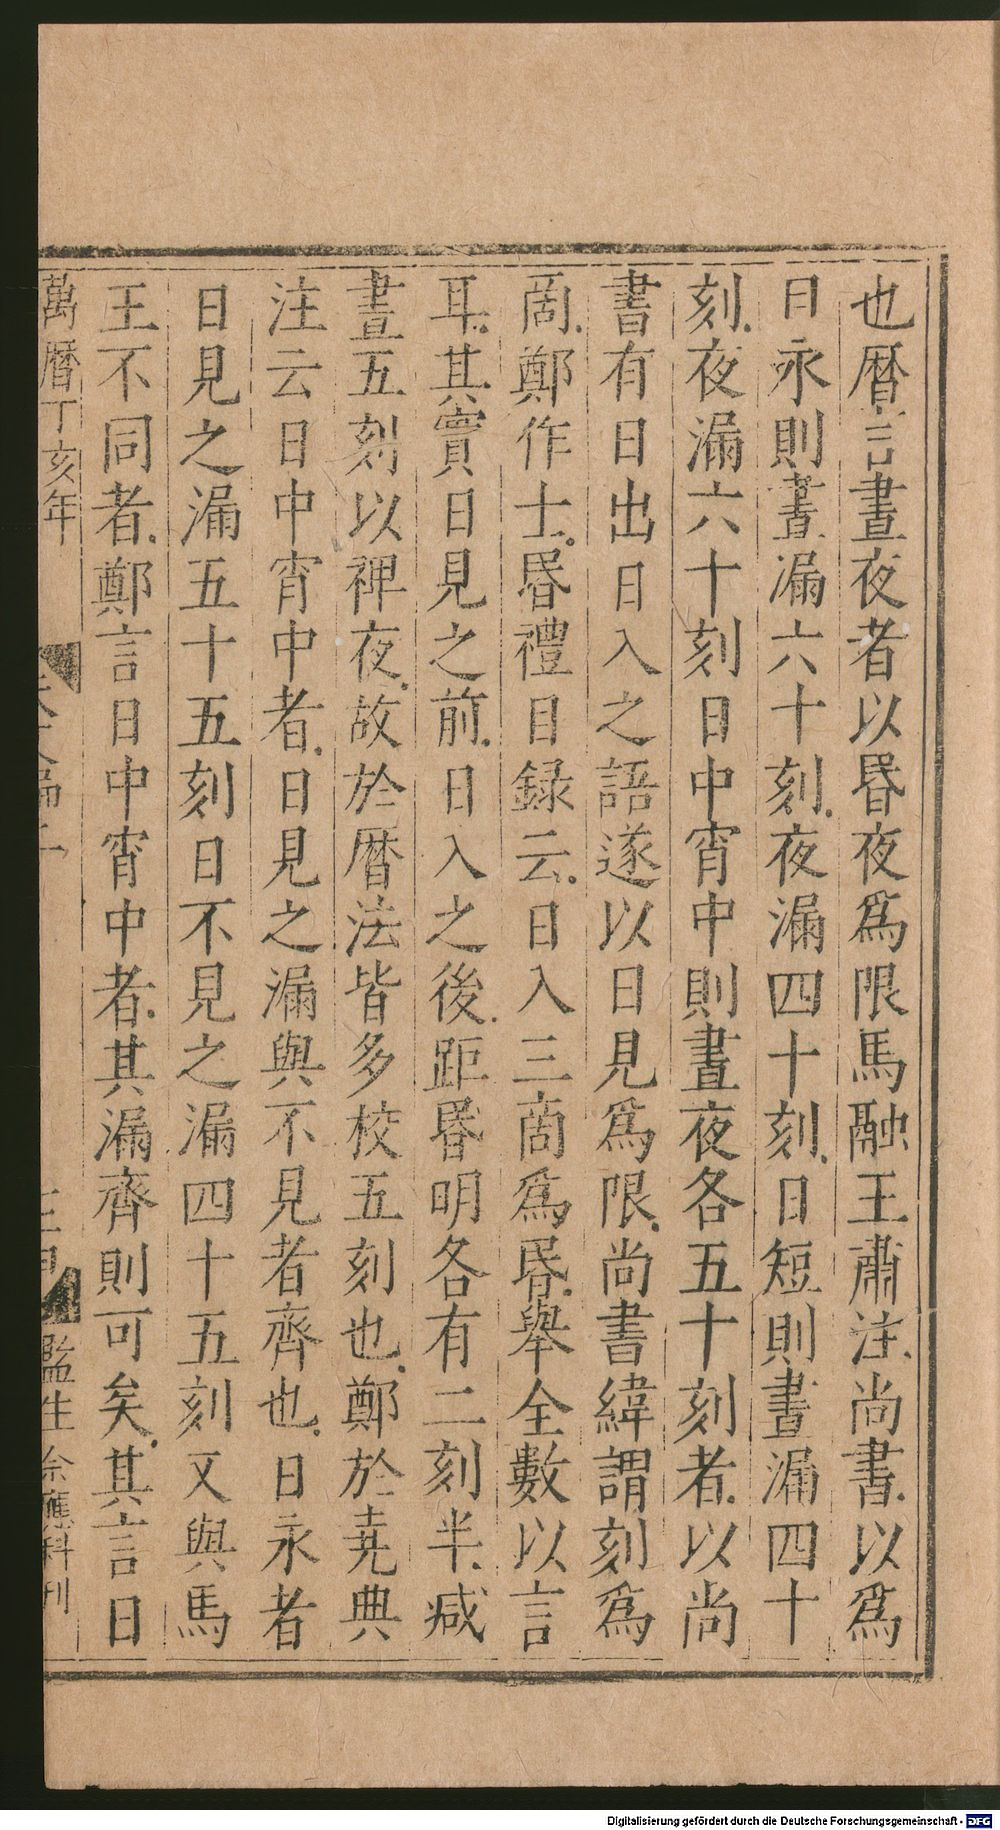 也曆言晝夜者以昬夜爲限馬融王肅注尚書以爲
日永則晝漏六十刻夜漏四十刻日短則晝漏四十
刻夜漏六十刻日中宵中則晝夜各五十刻者以尚
書有日出日入之語遂以日見爲限尚書緯謂刻爲
啇鄭作士昬禮目録云日入三啇爲昬舉全數以言
耳其實日見之前日入之後距昬明各有二刻半减
晝五刻以裨夜故於曆法皆多校五刻也鄭於堯典
注云日中宵中者日見之漏與不見者齊也日永者
日見之漏五十五刻日不見之漏四十五刻又與馬
王不同者鄭言日中宵中者其漏齊則可矣其言日
萬曆丁亥年
監生余應科刊
Digitalisierung gefördert durch die Deutsche Forschungsgemeinschaft - DFG